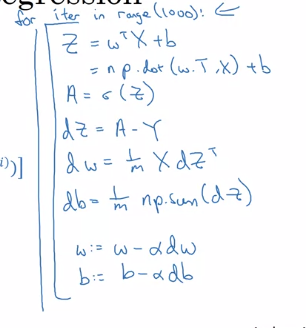 gression
for iter in range(1000): ←
Z = wᵀX + b
= np.dot(w.T, X) + b
A = σ(Z)
dZ = A - Y
dw = 1/m X dZᵀ
i))]
db = 1/m np.sum(dZ)
w := w - αdw
b := b - αdb